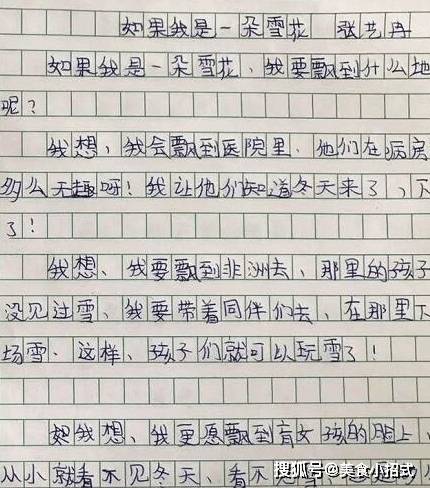 如果我是一朵雪花 张艺冉
如果我是一朵雪花、我要飘到什么地
呢？
我想、我会飘到医院里、他们在病房
多么无趣呀！我让他们知道冬天来了、下
了！
我想、我要飘到非洲去、那里的孩子
没见过雪、我要带着同伴们去、在那里下
场雪、这样、孩子们就可以玩雪了！
我想、我更愿飘到盲女孩的脸上、
从小就看不见冬天、看不见雪、
搜狐号@美食小招式